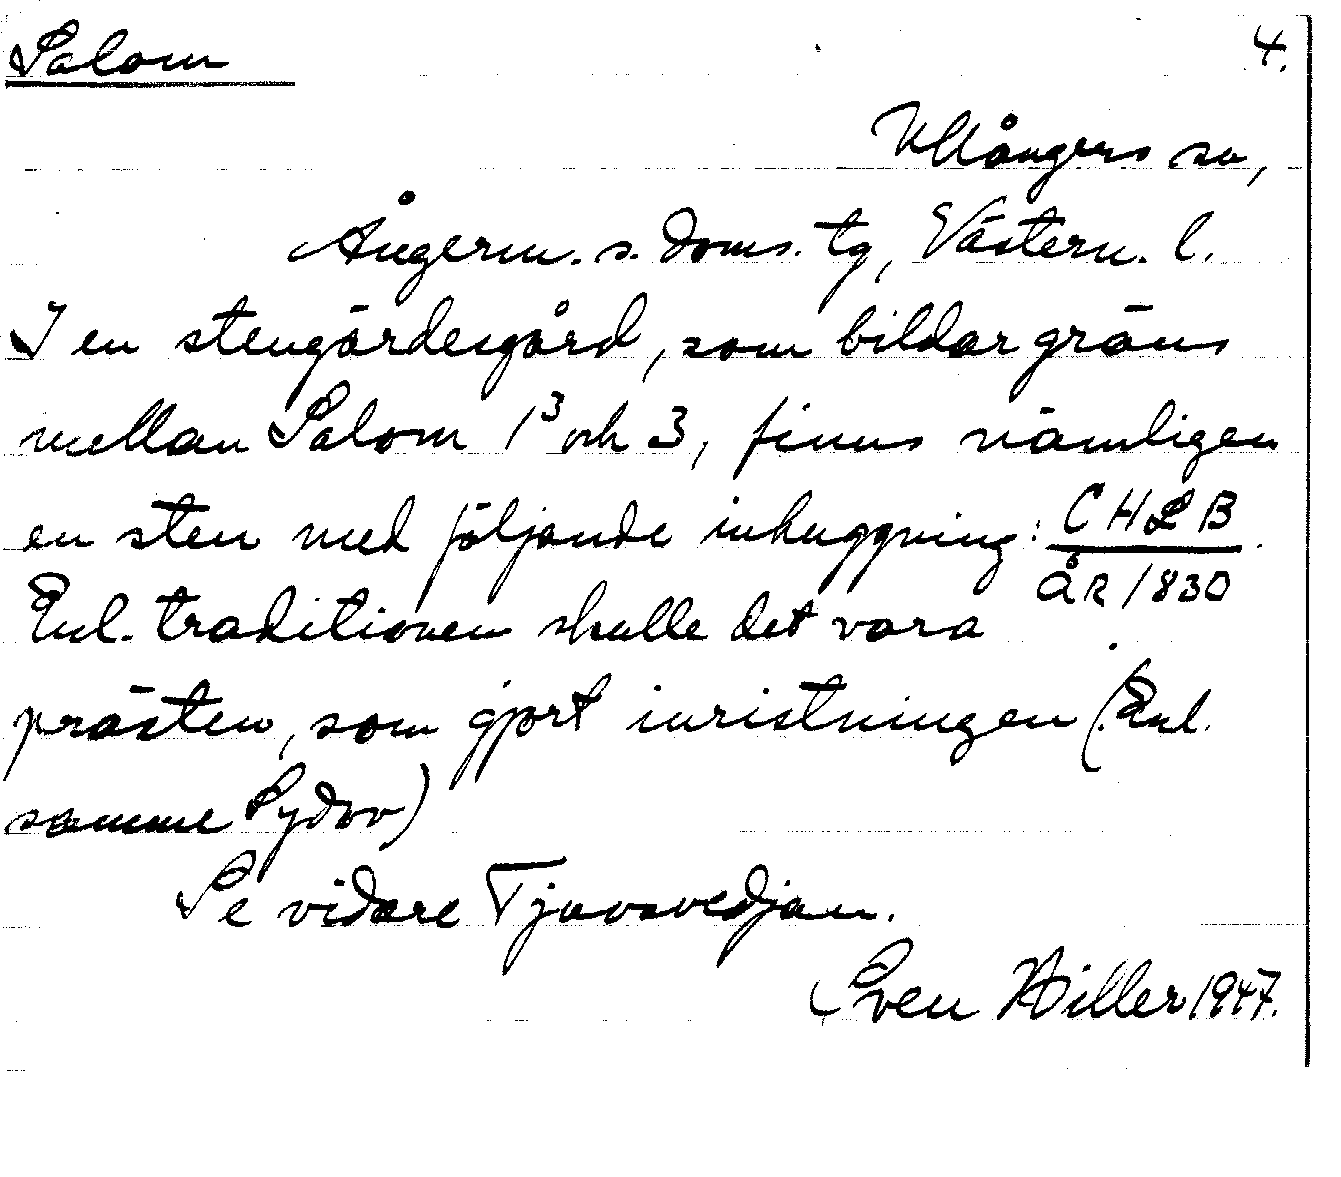 Salom 4.
Ullångers sn,
Ångerm. s. doms. tg, Västern. l.
I en stengärdesgård, som bildar gräns
mellan Salom 1³ och 3, finns nämligen
en sten med följande inhuggning: C H L B
ÅR 1830
Enl. traditionen skulle det vara
prästen, som gjort inristningen (Enl.
samme Sydow)
Se vidare Tjuvavedjan.
Sven Hiller 1947.